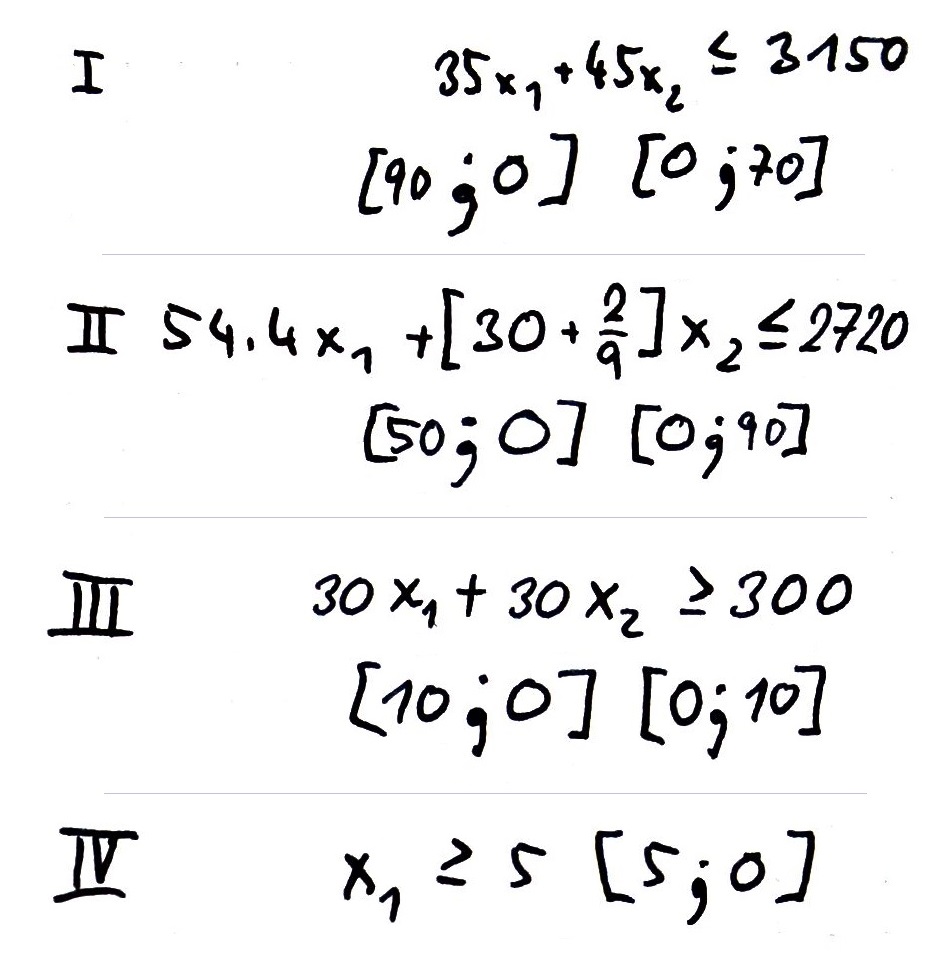 I 35x₁ + 45x₂ ≤ 3150
[90;0] [0;70]
II 54.4x₁ + [30 + 2/9]x₂ ≤ 2720
[50;0] [0;90]
III 30x₁ + 30x₂ ≥ 300
[10;0] [0;10]
IV x₁ ≥ 5 [5;0]